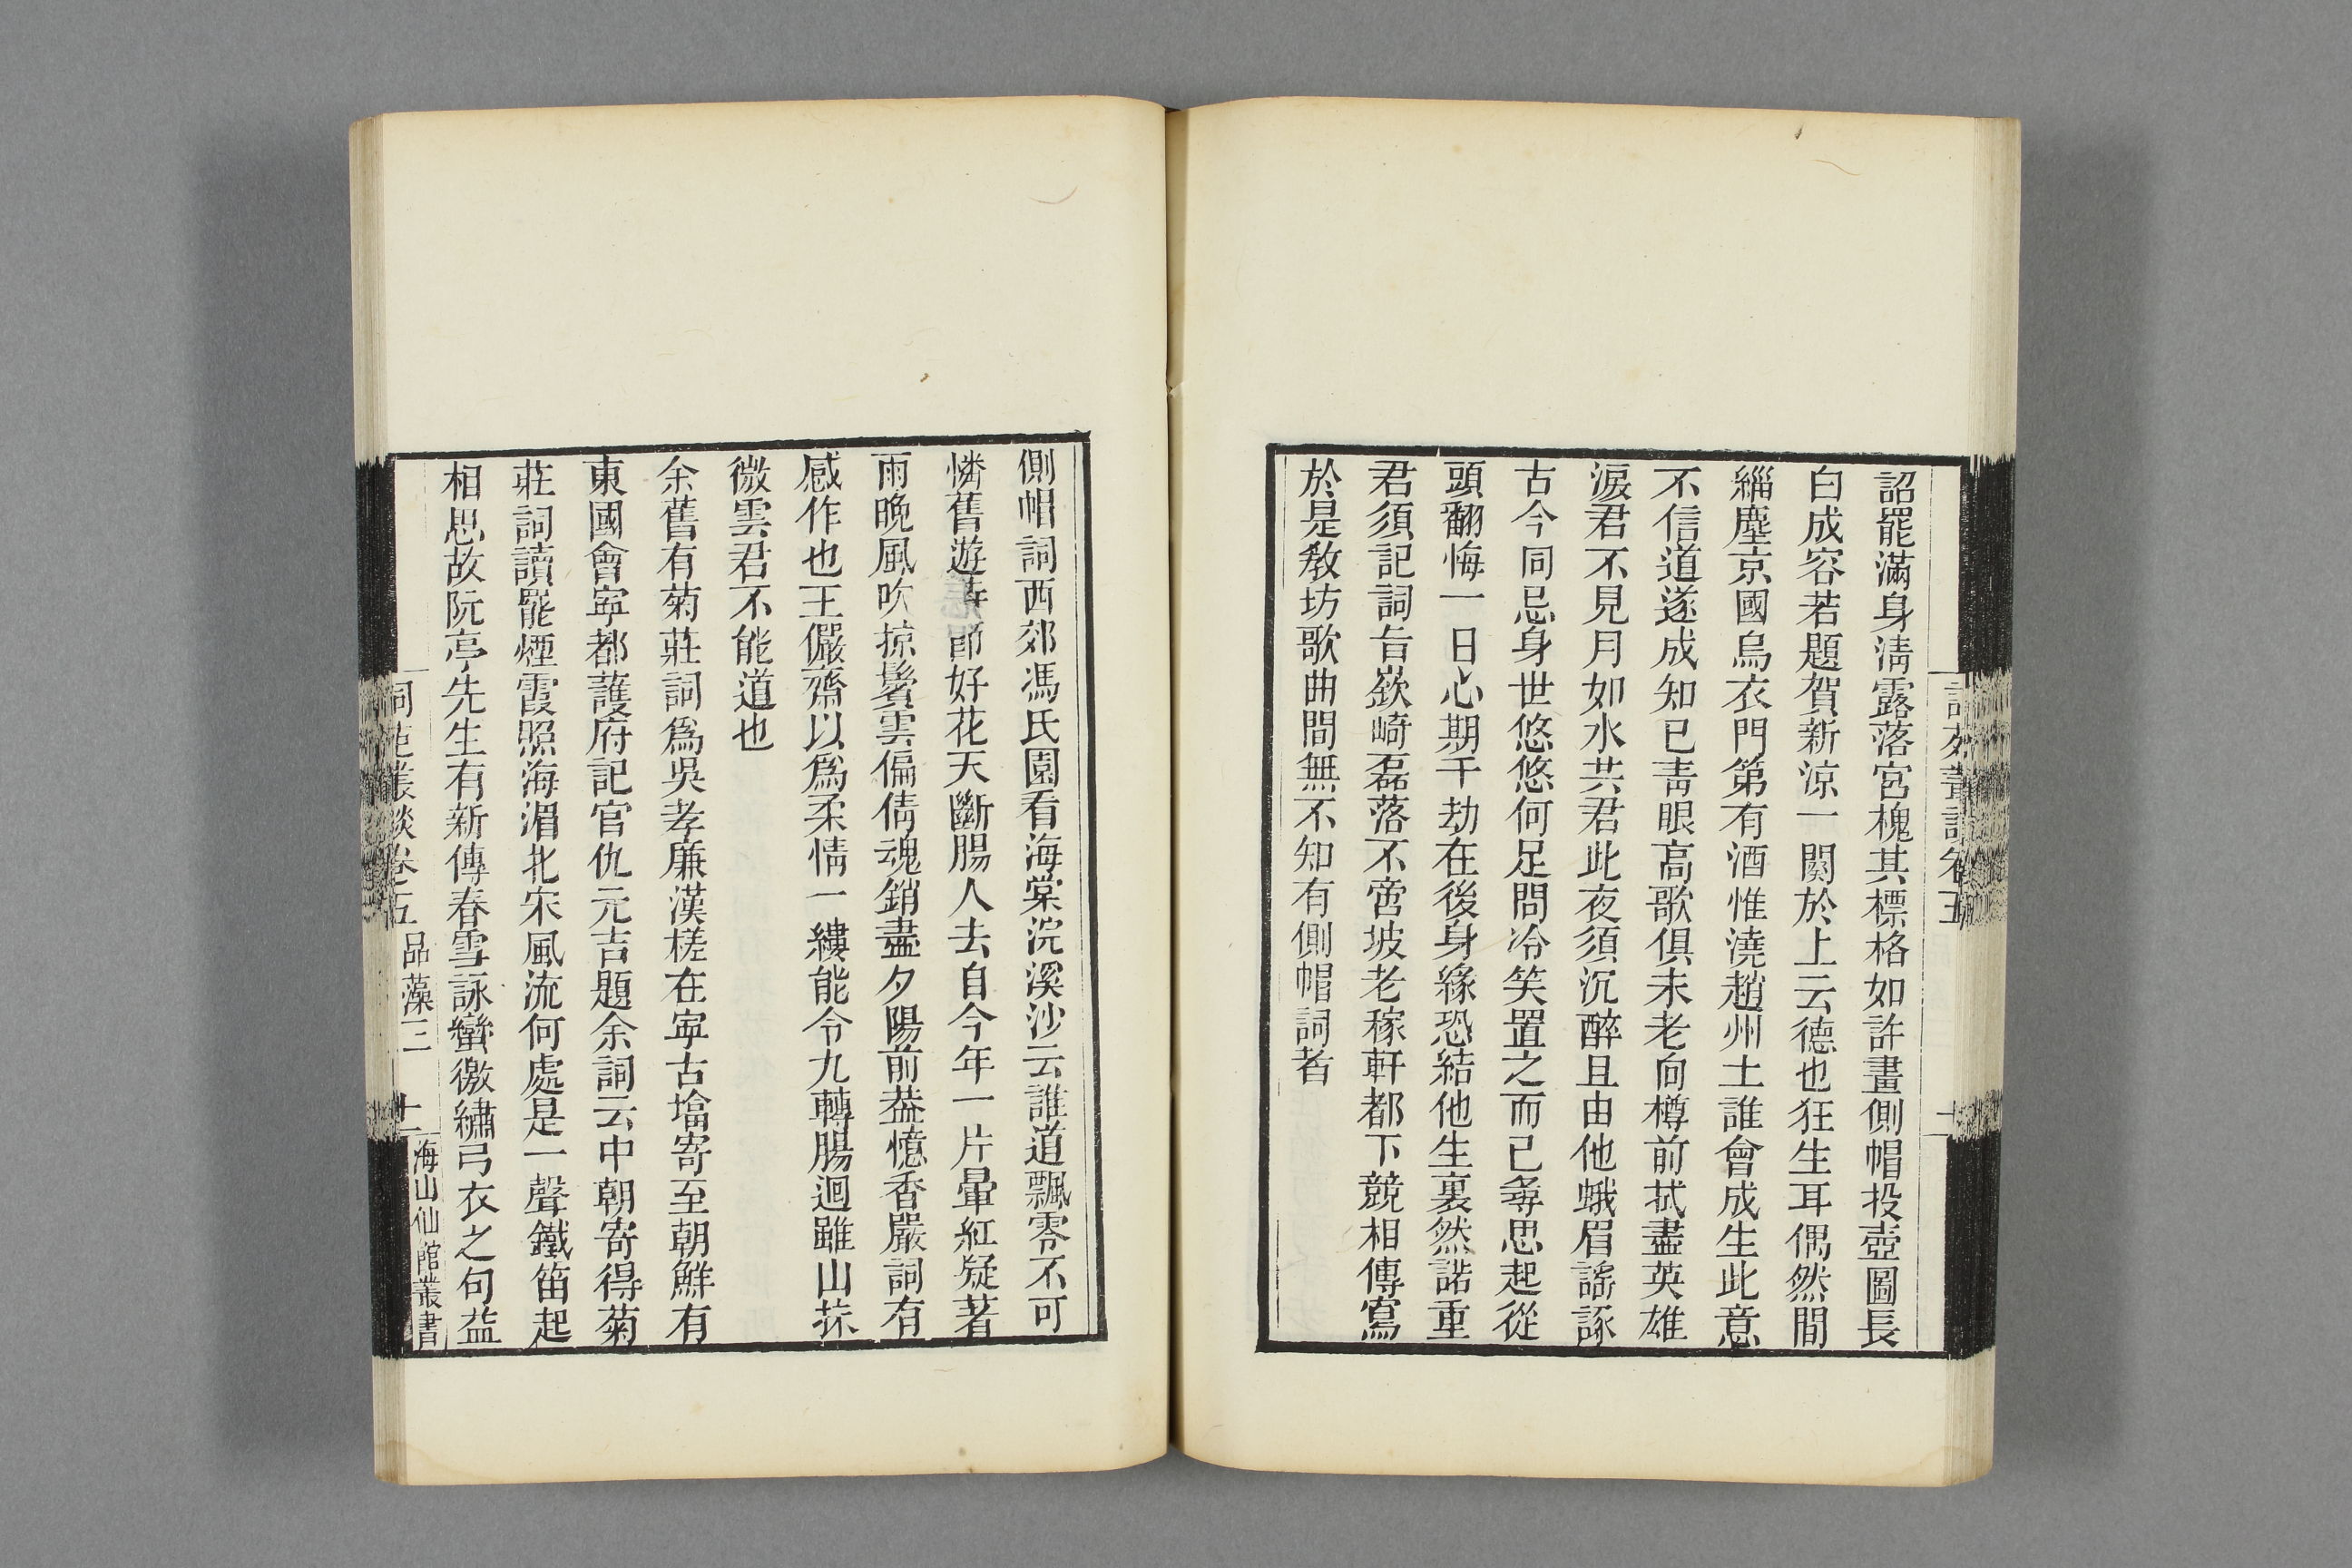 詔罷滿身淸露落宮槐其標格如許畫側帽投壺圖長
白成容若題賀新涼一闋於上云德也狂生耳偶然間
緇塵京國烏衣門第有酒惟澆趙州土誰會成生此意
不信道遂成知已靑眼高歌俱未老向樽前拭盡英雄
淚君不見月如水共君此夜須沉醉且由他蛾眉謠諑
古今同忌身世悠悠何足問冷笑置之而已尋思起從
頭翻悔一日心期千劫在後身緣恐結他生裏然諾重
君須記詞旨嶔崎磊落不啻坡老稼軒都下競相傳寫
於是敎坊歌曲間無不知有側帽詞者
側帽詞西郊馮氏園看海棠浣溪沙云誰道飄零不可
憐舊遊時節好花天斷腸人去自今年一片暈紅疑著
雨晚風吹掠鬢雲偏倩魂銷盡夕陽前葢憶香嚴詞有
感作也王儼齋以爲柔情一縷能令九轉腸迴雖山抹
微雲君不能道也
余舊有菊莊詞爲吳孝廉漢槎在寧古塔寄至朝鮮有
東國會寧都護府記官仇元吉題余詞云中朝寄得菊
莊詞讀罷煙霞照海湄北宋風流何處是一聲鐵笛起
相思故阮亭先生有新傳春雪詠蠻徼繡弓衣之句益
詞苑叢談卷五 品藻三 十一 海山仙館叢書